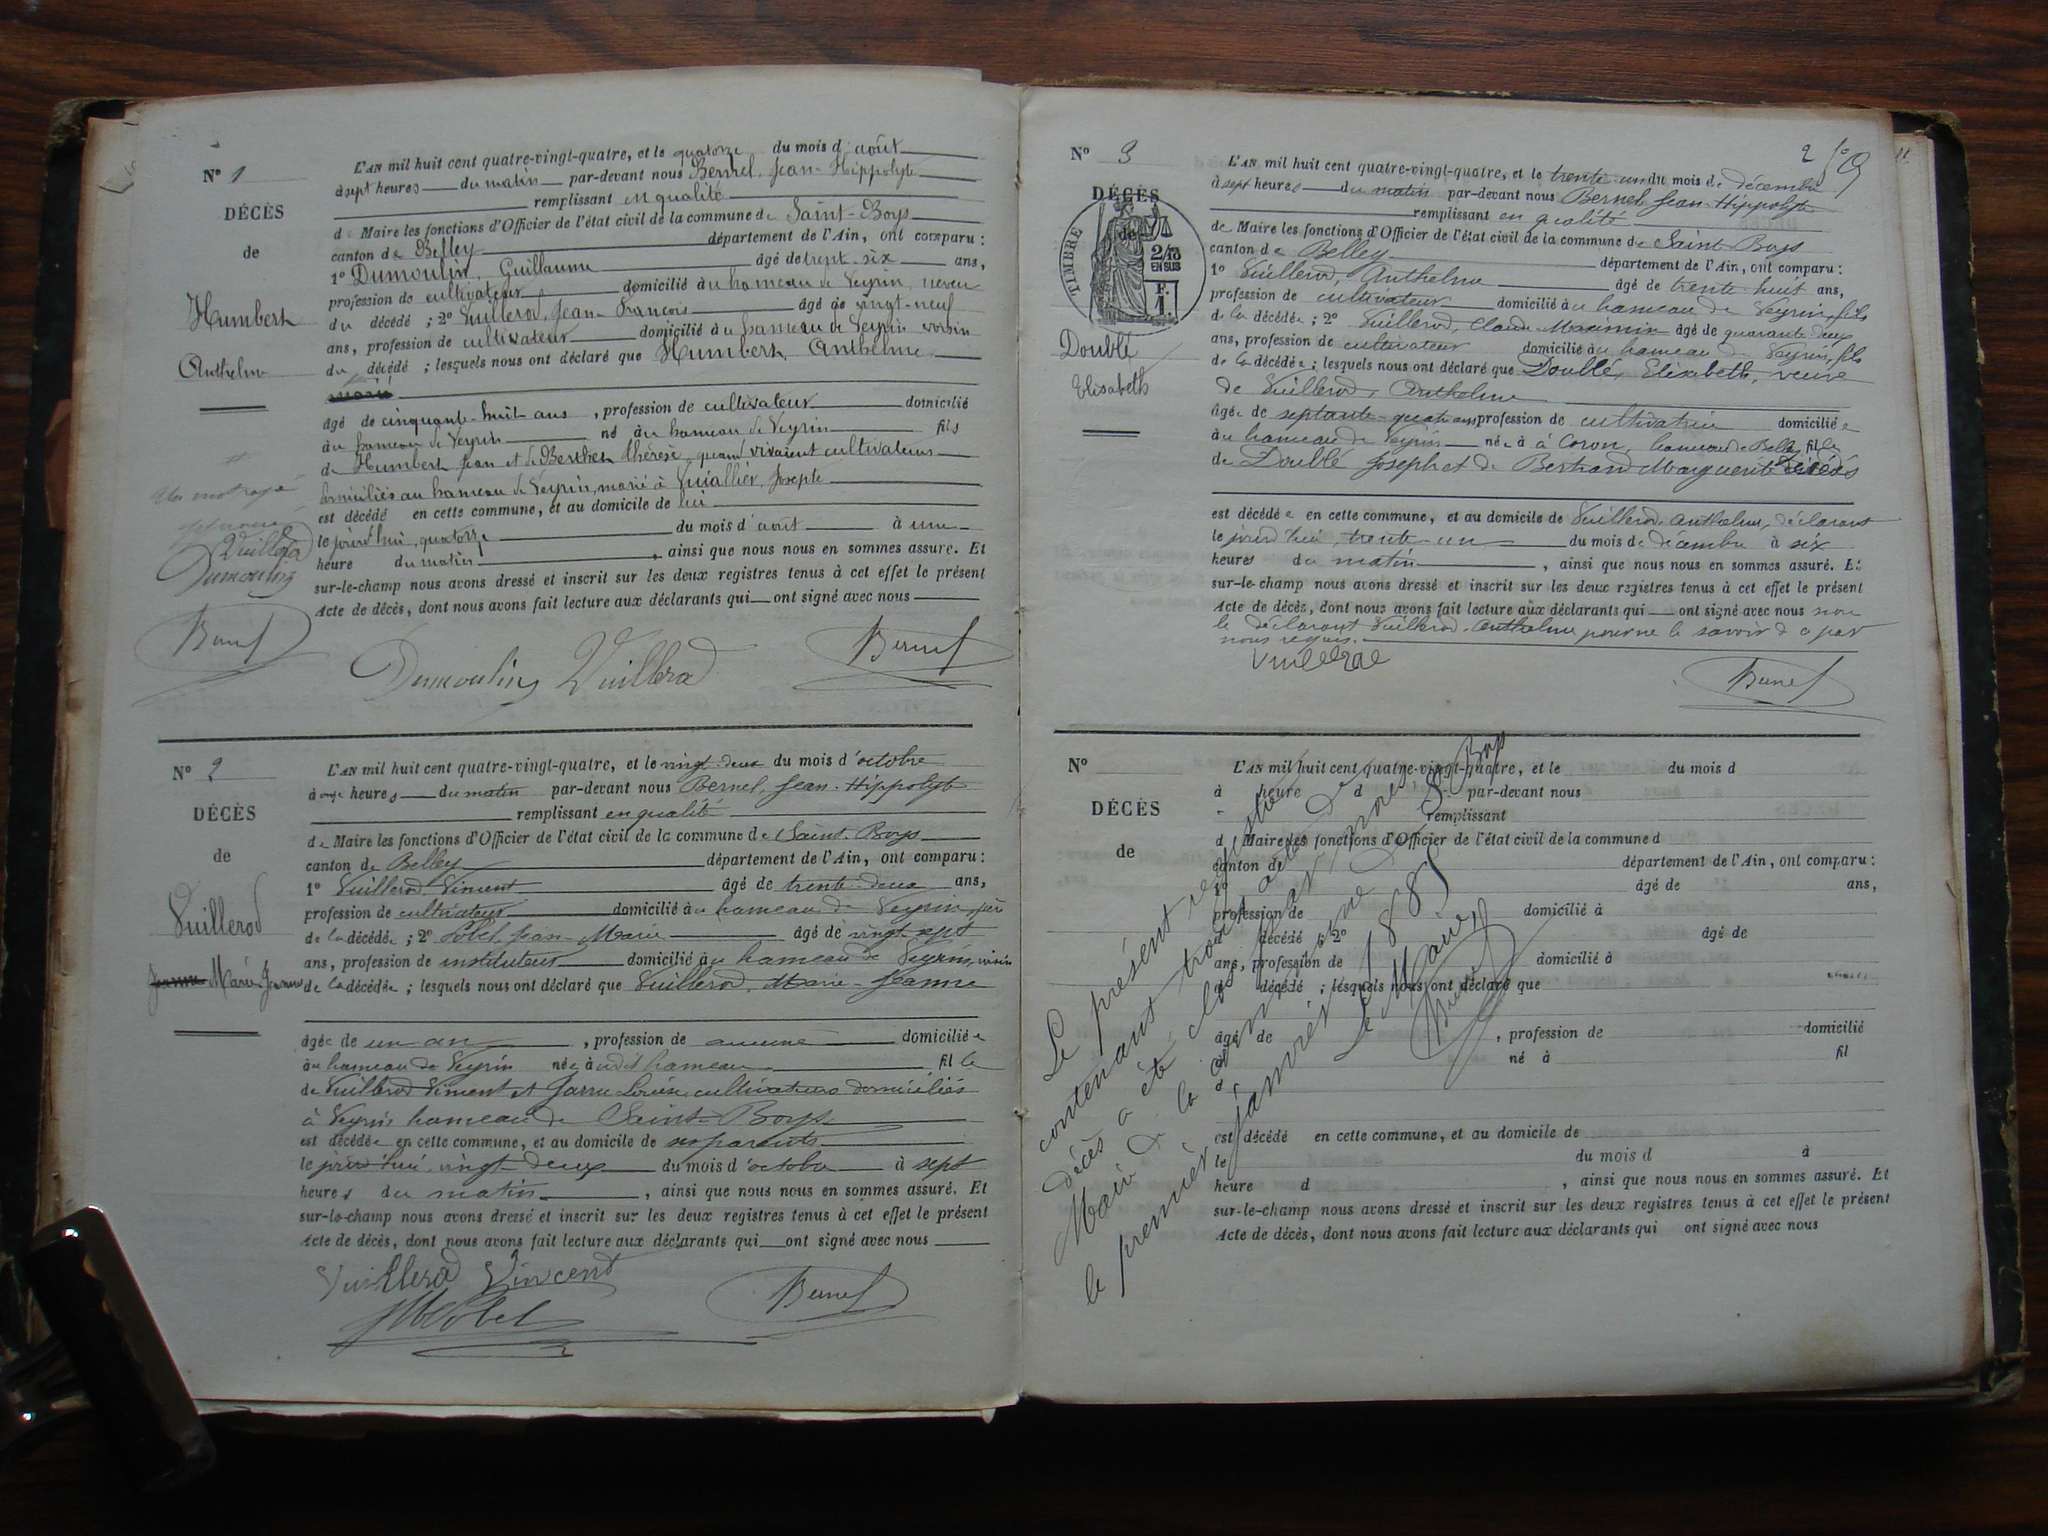 N° 1
DÉCÈS
de
Humbert
Anthelme
L'AN mil huit cent quatre-vingt-quatre, et le quatorze du mois d'août
à sept heures du matin par-devant nous Bernel, Jean-Hippolyte
remplissant en qualité
de Maire les fonctions d'Officier de l'état civil de la commune de Saint-Boys
canton de Belley département de l'Ain, ont comparu :
1° Dumoulin, Guillaume âgé de trent-six ans,
profession de cultivateur domicilié au hameau de Veyrin, neveu
du décédé ; 2° Vuillerod, Jean-François âgé de vingt-neuf
ans, profession de cultivateur domicilié au hameau de Veyrin voisin
du décédé ; lesquels nous ont déclaré que Humbert, Anthelme
âgé de cinquante-huit ans, profession de cultivateur domicilié
au hameau de Veyrin né au hameau de Veyrin fils
de Humbert Jean et de Berthet thérèse, quand vivaient cultivateurs
domiciliés au hameau de Veyrin, marié à Vuiallier, Josephte
est décédé en cette commune, et au domicile de lui
le jourd'hui, quatorze du mois d'août à une
heure du matin, ainsi que nous nous en sommes assuré. Et
sur-le-champ nous avons dressé et inscrit sur les deux registres tenus à cet effet le présent
Acte de décès, dont nous avons fait lecture aux déclarants qui ont signé avec nous
Un mot rayé
Vuillerod
Dumoulin
Bernel
Dumoulin Vuillerod
Bernel
N° 2
DÉCÈS
de
Vuillerod
Marie-Jeanne
L'AN mil huit cent quatre-vingt-quatre, et le vingt-deux du mois d'octobre
à onze heures du matin par-devant nous Bernel, Jean-Hippolyte
remplissant en qualité
de Maire les fonctions d'Officier de l'état civil de la commune de Saint-Boys
canton de Belley département de l'Ain, ont comparu :
1° Vuillerod Vincent âgé de trente-deux ans,
profession de cultivateur domicilié au hameau de Veyrin, père
de la décédée ; 2° Sobel, Jean-Marie âgé de vingt-sept
ans, profession de instituteur domicilié au hameau de Veyrin, voisin
de la décédée ; lesquels nous ont déclaré que Vuillerod, Marie-Jeanne
âgée de un an, profession de aucune domiciliée
au hameau de Veyrin née audit hameau fille
de Vuillerod Vincent et Louise cultivateurs domiciliés
à Veyrin hameau de Saint-Boys
est décédée en cette commune, et au domicile de ses parents
le jourd'hui, vingt-deux du mois d'octobre à sept
heures du matin, ainsi que nous nous en sommes assuré. Et
sur-le-champ nous avons dressé et inscrit sur les deux registres tenus à cet effet le présent
Acte de décès, dont nous avons fait lecture aux déclarants qui ont signé avec nous
Vuillerod Vincent
Bernel
N° 3
DÉCÈS
de
TIMBRE
2/10
EN SUS
F.
1.
Doublé
Elisabeth
L'AN mil huit cent quatre-vingt-quatre, et le trente-un du mois de décembre
à sept heures du matin par-devant nous Bernel Jean-Hippolyte
remplissant en qualité
de Maire les fonctions d'Officier de l'état civil de la commune de Saint-Boys
canton de Belley département de l'Ain, ont comparu :
1° Vuillerod, Anthelme âgé de trente-huit ans,
profession de cultivateur domicilié au hameau de Veyrin, fils
de la décédée ; 2° Vuillerod, Claude Maximin âgé de quarante deux
ans, profession de cultivateur domicilié au hameau de Veyrin, fils
de la décédée ; lesquels nous ont déclaré que Doublé, Elisabeth, veuve
de Vuillerod, Anthelme
âgée de septante-quatre ans profession de cultivatrice domiciliée
au hameau de Veyrin née à à Coron, hameau de Belley, fille
de Doublé Joseph et de Bertrand Marguerite décédés
est décédée en cette commune, et au domicile de Vuillerod, Anthelme, déclarant
le jourd'hui, trente-un du mois de décembre à six
heures du matin, ainsi que nous nous en sommes assuré. Et
sur-le-champ nous avons dressé et inscrit sur les deux registres tenus à cet effet le présent
Acte de décès, dont nous avons fait lecture aux déclarants qui ont signé avec nous non
le déclarant Vuillerod, Anthelme pour ne le savoir de ce par
nous requis.
Vuillerod
Bernel
N°
DÉCÈS
de
L'AN mil huit cent quatre-vingt-quatre, et le du mois d
à heure d par-devant nous
remplissant
d Maire les fonctions d'Officier de l'état civil de la commune d
canton de département de l'Ain, ont comparu :
1° âgé de ans,
profession de domicilié à
d décédé ; 2° âgé de
ans, profession de domicilié à
d décédé ; lesquels nous ont déclaré que
âgé de , profession de domicilié
à né à fil
d
est décédé en cette commune, et au domicile de
le du mois d à
heure d , ainsi que nous nous en sommes assuré. Et
sur-le-champ nous avons dressé et inscrit sur les deux registres tenus à cet effet le présent
Acte de décès, dont nous avons fait lecture aux déclarants qui ont signé avec nous
Le présent registre
contenant trois actes de
décès a été clos par nous
Maire de la commune de St Boys
le premier janvier 1885
Le Maire
Bernel